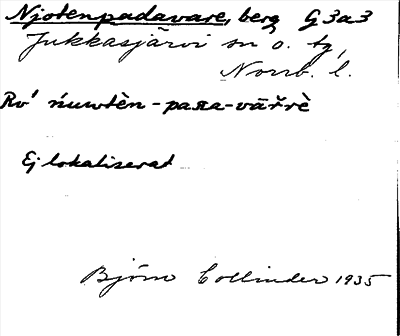 Njotenpadavare, berg G3a3
Jukkasjärvi sn o. tg,
Norrb. l.
Rv' ńuwtèn-paπa-vār̆rè
Ej lokaliserad
Björn Collinder 1935